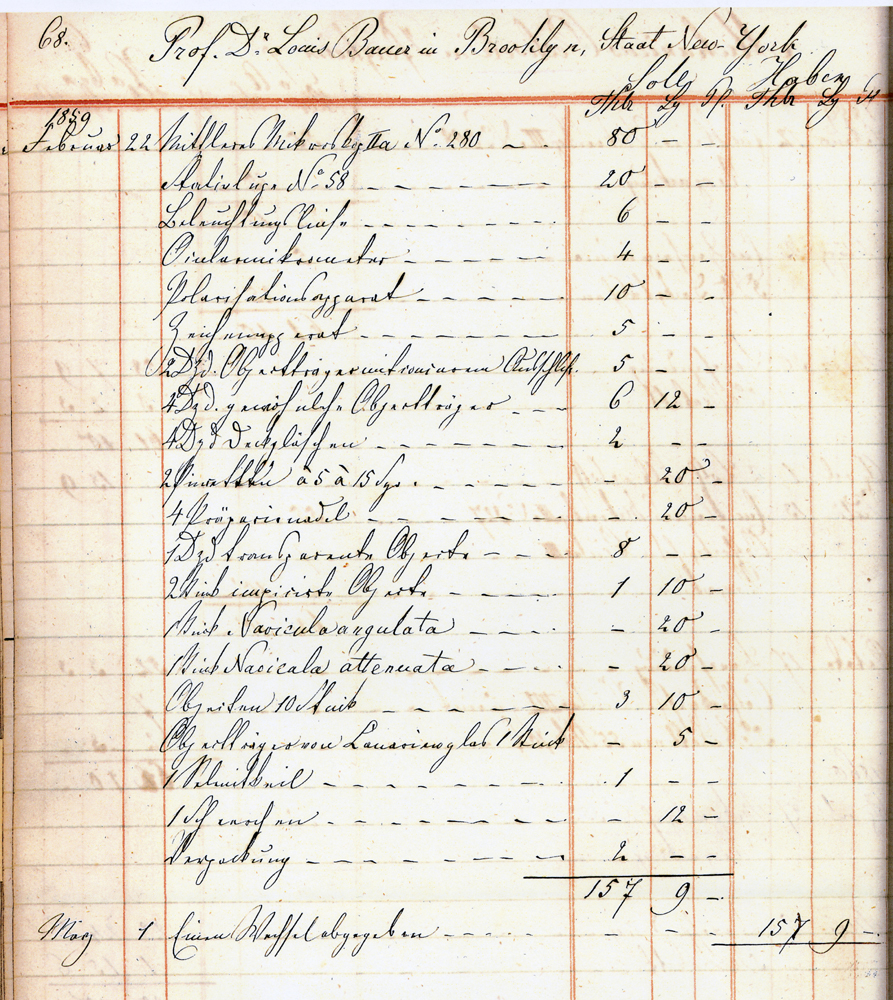 68.
Prof. Dr Louis Bauer in Brooklyn, Staat New-York
Soll Haben
Thlr Sg Pf. Thlr Sg Pf
1859
Februar 22 Mittleres Mikroskop IIa No. 280 80 - -
Stativlupe No 58 20 - -
Beleuchtungslinse 6 - -
Ocularmikrometer 4 - -
Polarisationsapparat 10 - -
Zeichenapparat 5 - -
2 Dzd. Objektträger mit concavem Ausschliff. 5 - -
4 Dzd. gewöhnliche Objektträger 6 12 -
4 Dzd Deckgläschen 2 - -
2 Pincetten à 5 à 15 Sgr. - 20 -
4 Präpariernadel - 20 -
1 Dzd transparente Objecte 8 - -
2 Stück injicirte Objecte 1 10 -
1 Stück Navicula angulata - 20 -
1 Stück Navicula attenuata - 20 -
Objecten 10 Stück 3 10 -
Objektträger von Canarienglas 1 Stück - 5 -
1 1 - -
1 - 12 -
Verpackung 2 - -
157 9 -
May 1 Einen Wechsel abgegeben - - - 157 9 -